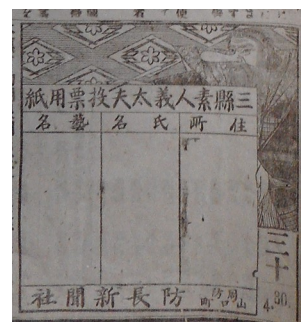 三縣素人義太夫投票用紙
住所
氏名
藝名
周防
山口町
防長新聞社
三十
4.30.